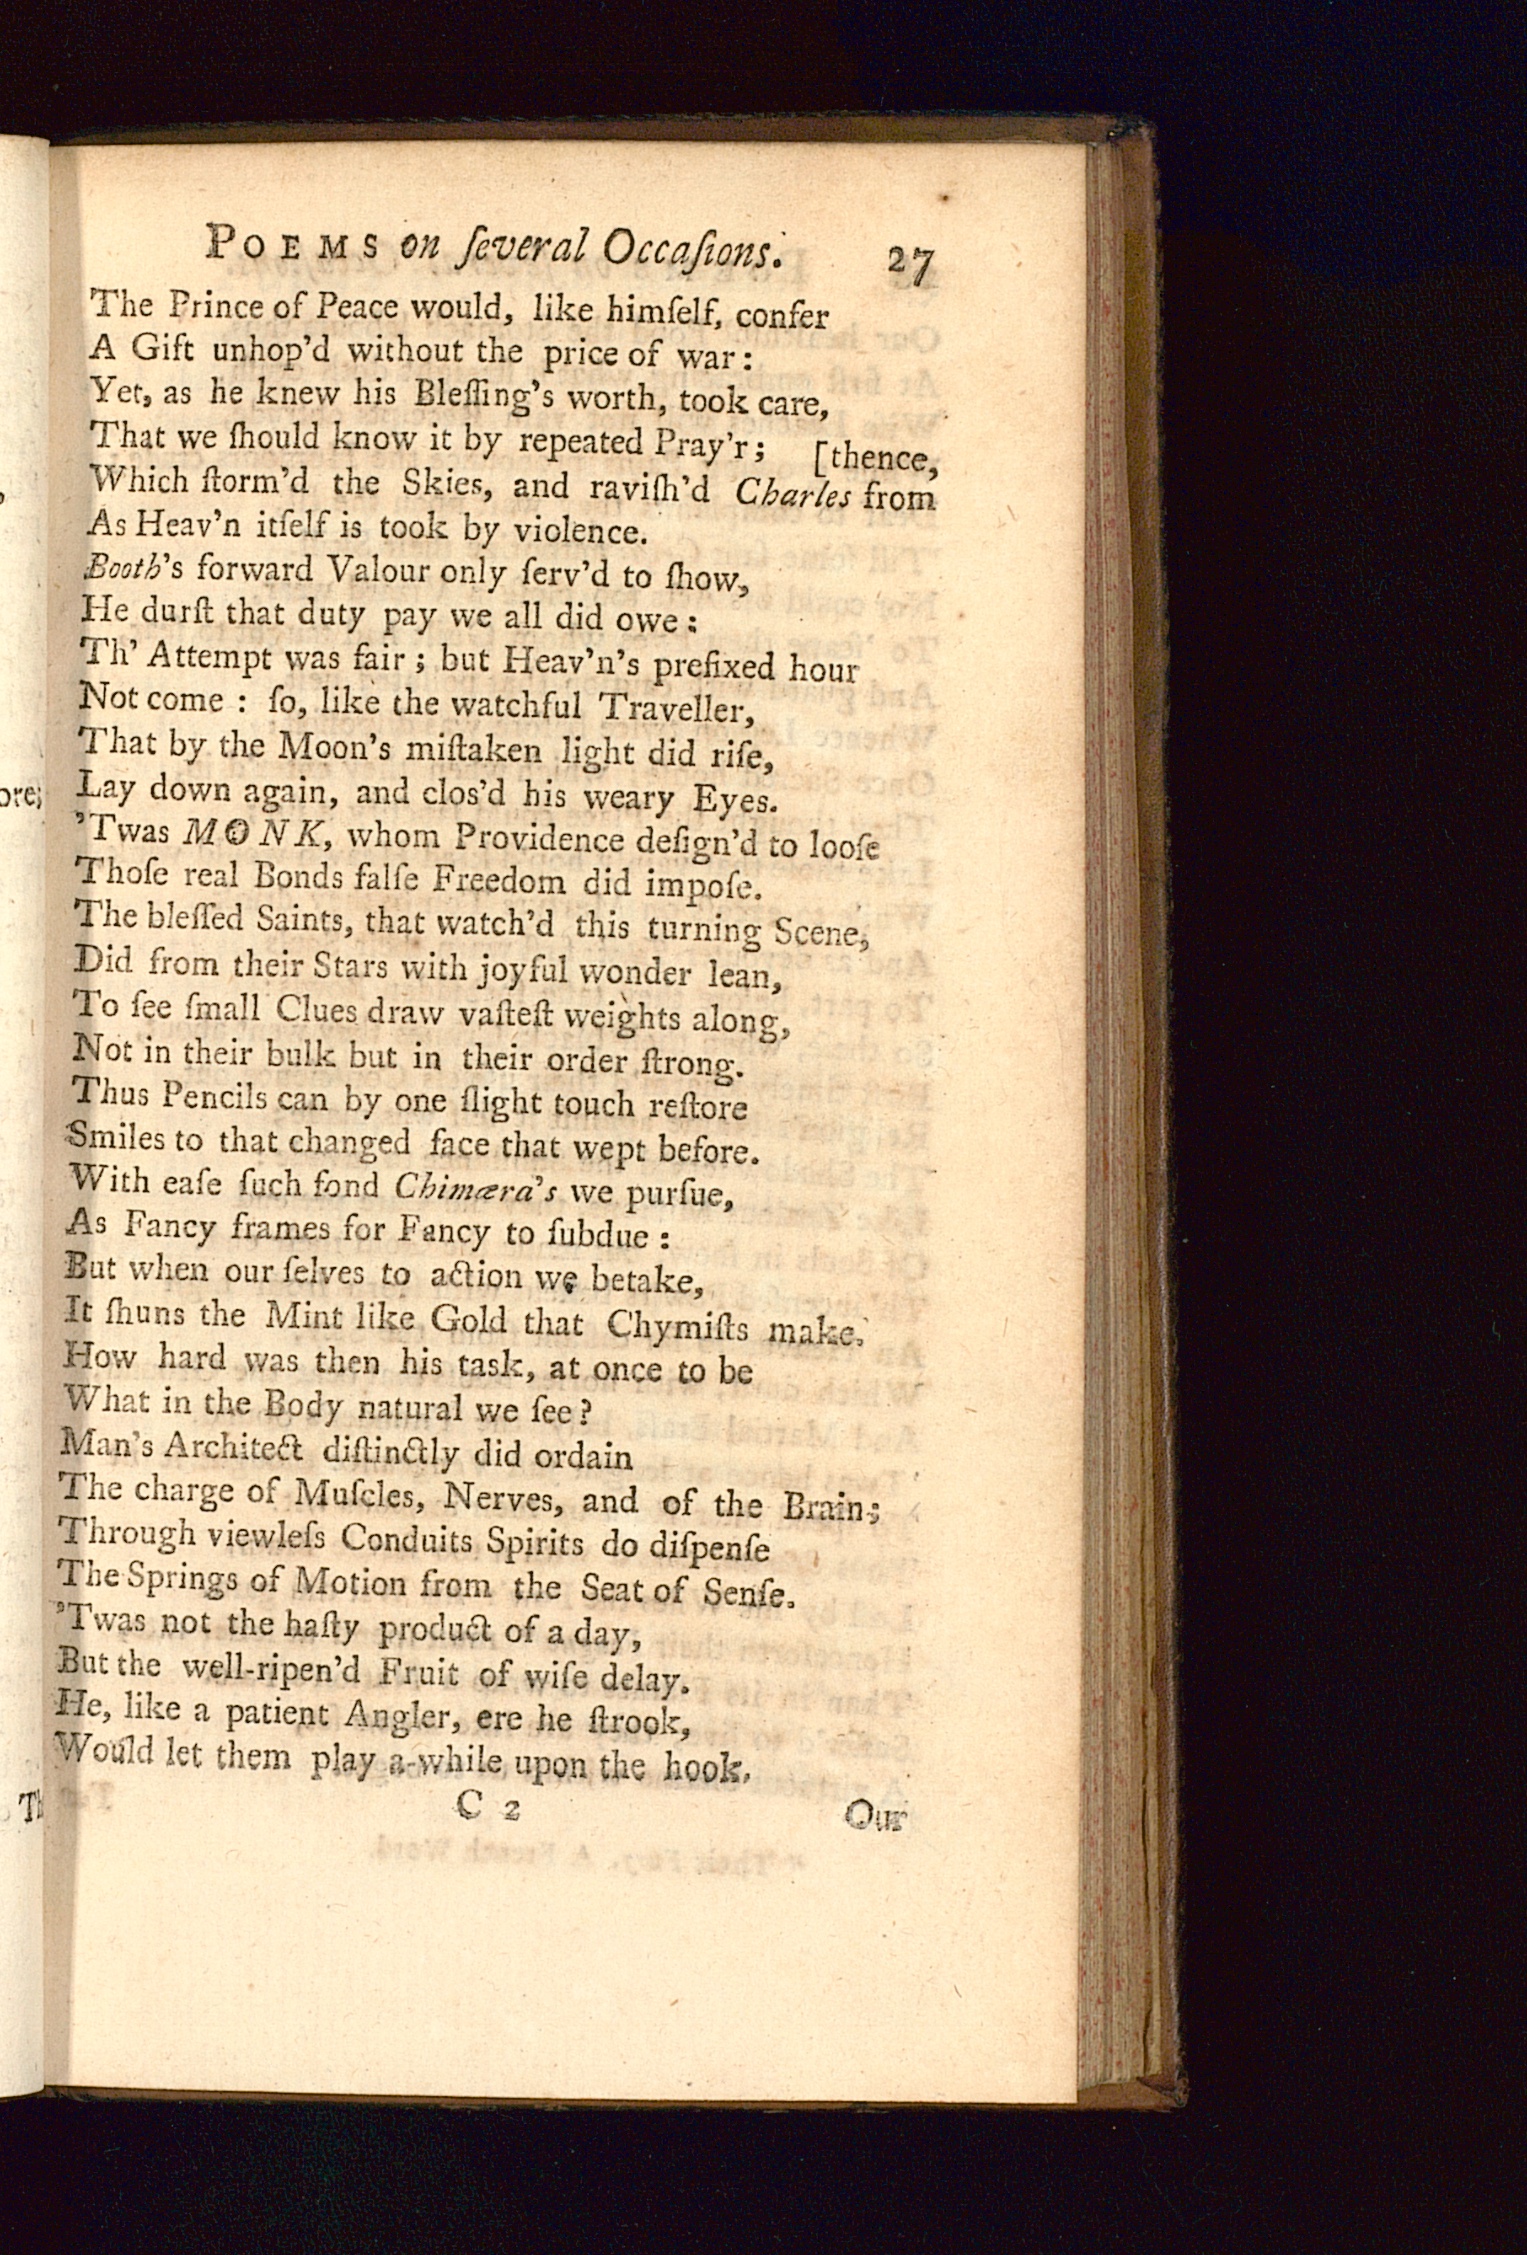 POEMS on ſeveral Occaſions. 27
The Prince of Peace would, like himſelf, confer
A Gift unhop'd without the price of war:
Yet, as he knew his Bleſſing's worth, took care,
That we ſhould know it by repeated Pray'r; [thence,
Which ſtorm'd the Skies, and raviſh'd Charles from
As Heav'n itſelf is took by violence.
Booth's forward Valour only ſerv'd to ſhow,
He durſt that duty pay we all did owe:
Th' Attempt was fair; but Heav'n's prefixed hour
Not come: ſo, like the watchful Traveller,
That by the Moon's miſtaken light did riſe,
Lay down again, and clos'd his weary Eyes.
'Twas MONK, whom Providence deſign'd to looſe
Thoſe real Bonds falſe Freedom did impoſe.
The bleſſed Saints, that watch'd this turning Scene,
Did from their Stars with joyful wonder lean,
To ſee ſmall Clues draw vaſteſt weights along,
Not in their bulk but in their order ſtrong.
Thus Pencils can by one ſlight touch reſtore
Smiles to that changed face that wept before.
With eaſe ſuch fond Chimæra's we purſue,
As Fancy frames for Fancy to ſubdue:
But when our ſelves to action we betake,
It ſhuns the Mint like Gold that Chymiſts make.
How hard was then his task, at once to be
What in the Body natural we ſee?
Man's Architect diſtinctly did ordain
The charge of Muſcles, Nerves, and of the Brain;
Through viewleſs Conduits Spirits do diſpenſe
The Springs of Motion from the Seat of Senſe.
'Twas not the haſty product of a day,
But the well-ripen'd Fruit of wiſe delay.
He, like a patient Angler, ere he ſtrook,
Would let them play a-while upon the hook.
C 2 Our